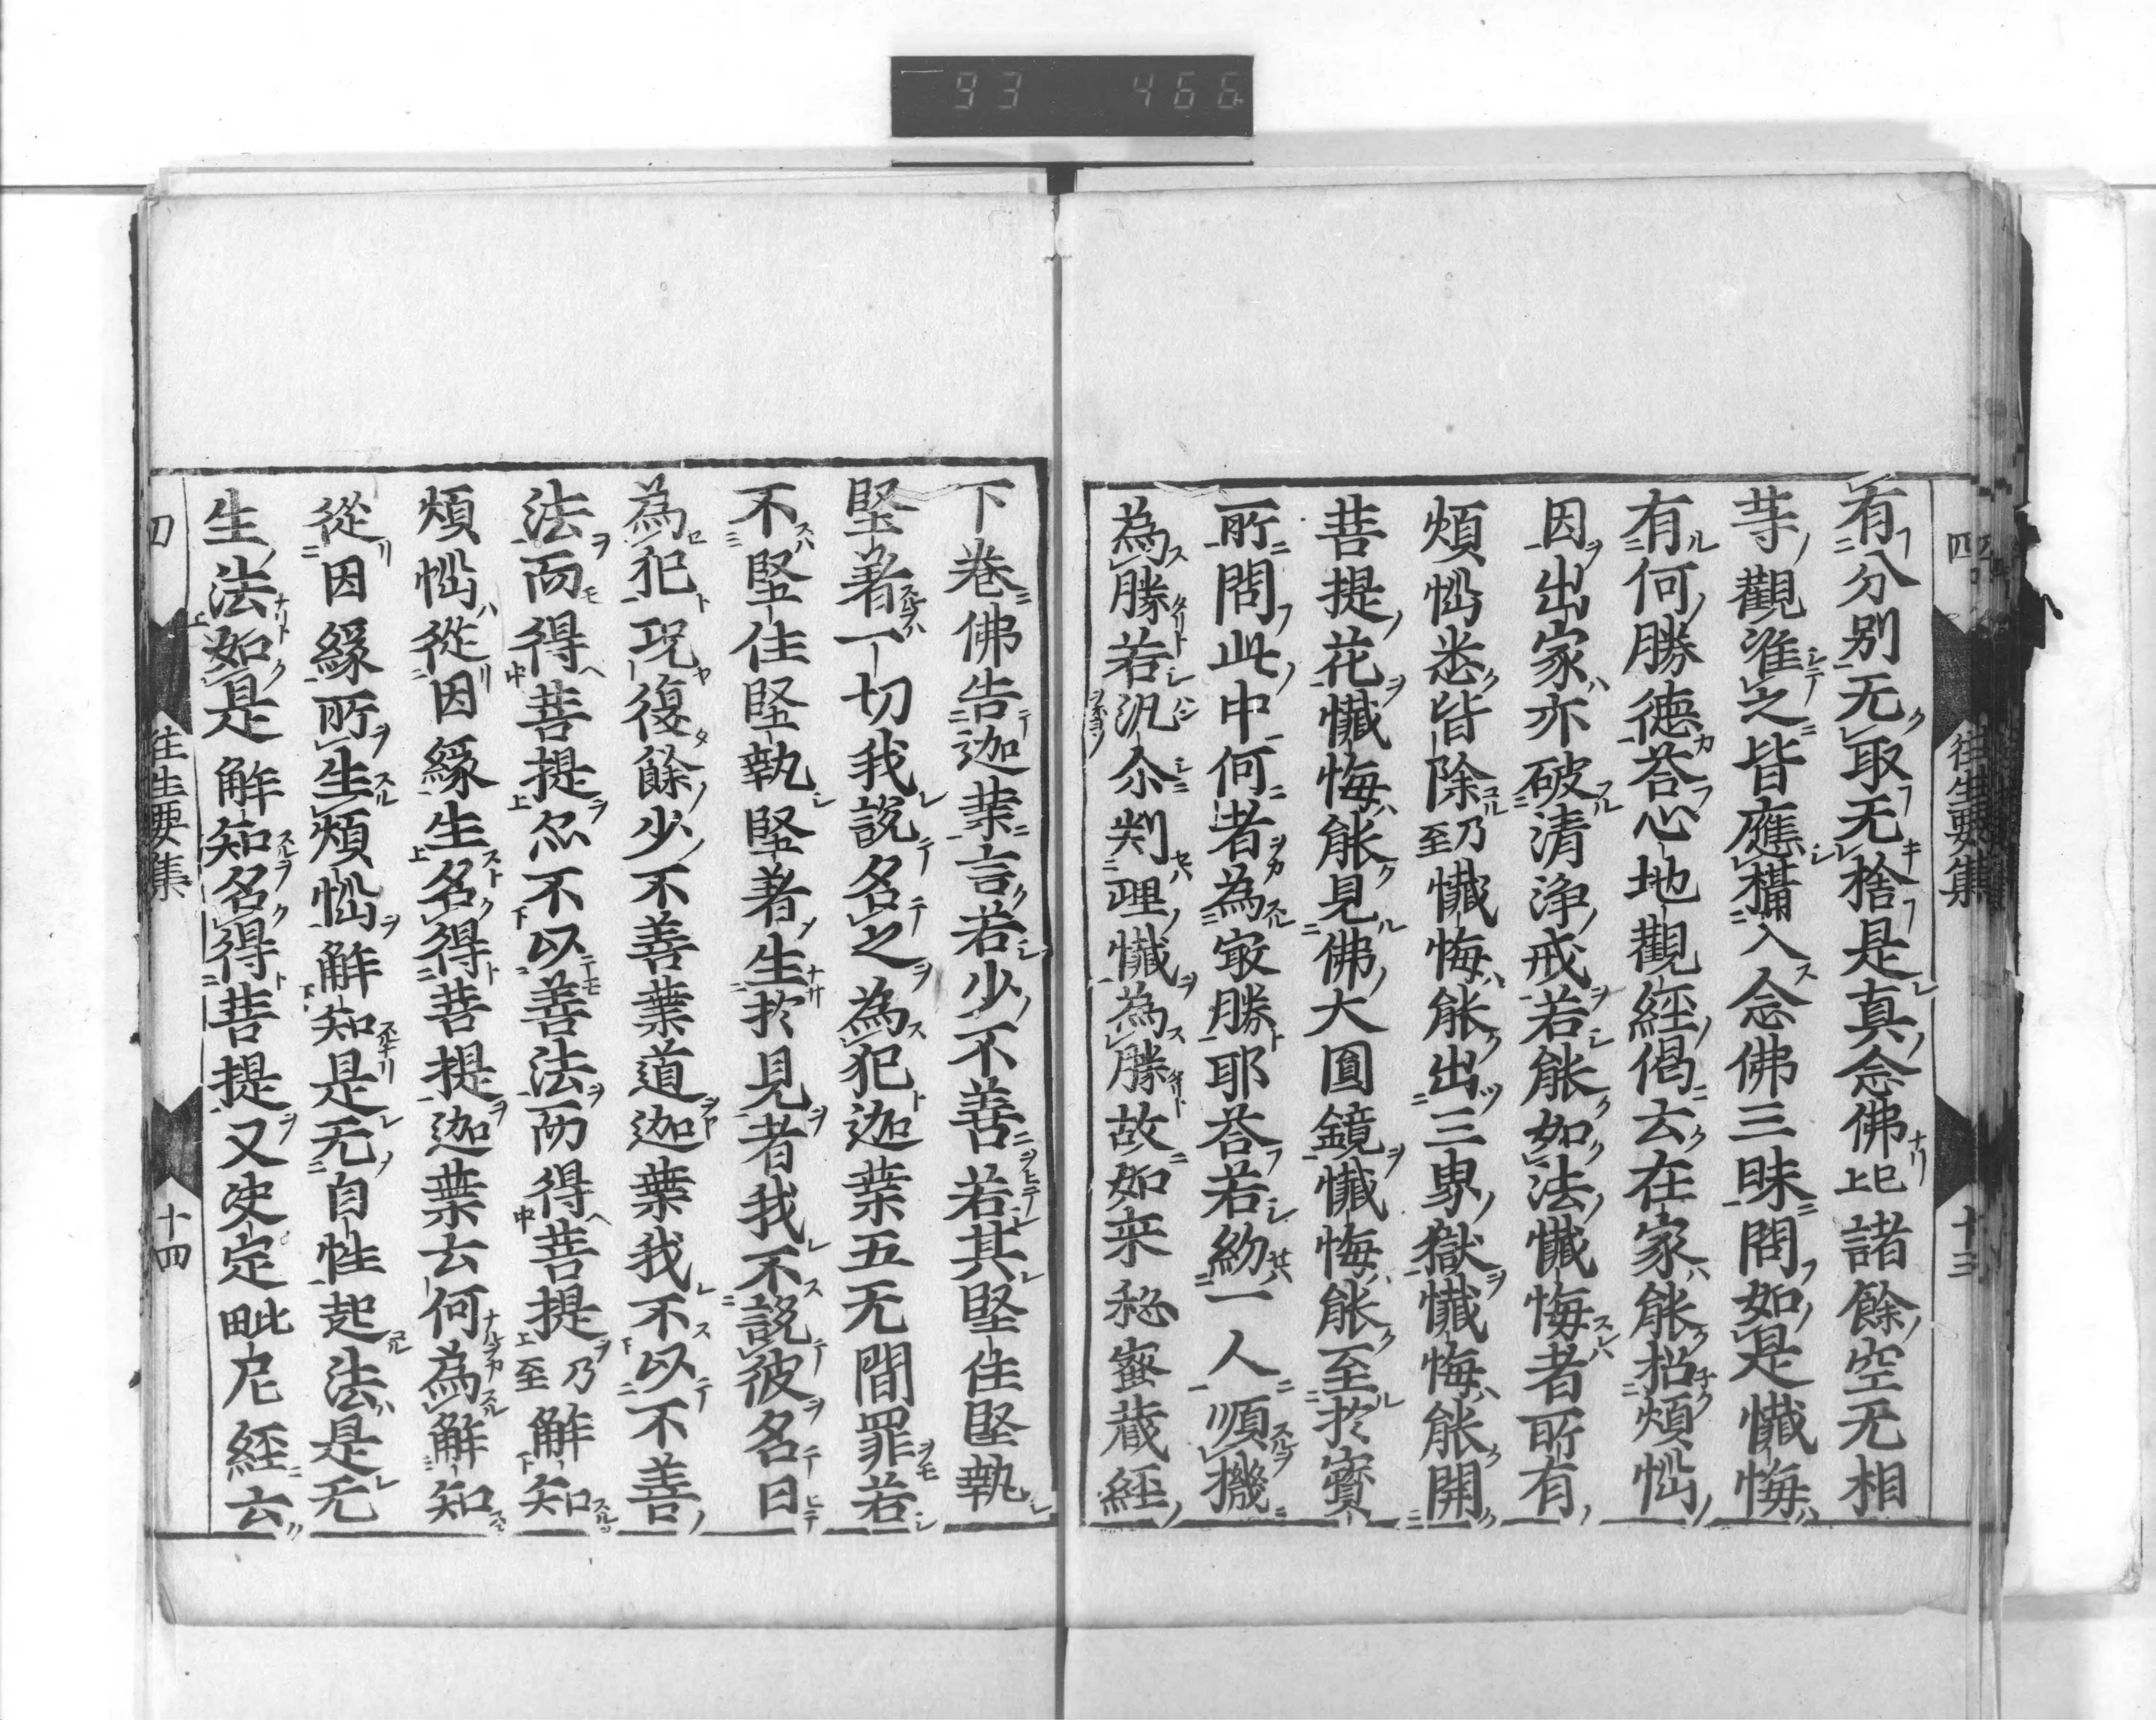 93 466
四 往生要集 十三
有分別无取无捨是真念佛已上諸餘空无相
等觀准之皆應攝入念佛三昧問如是懺悔
有何勝德荅心地觀經偈云在家能招煩惱
因出家亦破清淨戒若能如法懺悔者所有
煩惱悉皆除乃至懺悔能出三界獄懺悔能開
菩提花懺悔能見佛大圓鏡懺悔能至於寳
所問此中何者為㝡勝耶荅若約一人順機
為勝若汎尒判理懺為勝故如来秘蜜蔵經
下卷佛告迦葉言若少不善若其堅住堅執
堅著一切我說名之為犯迦葉五无間罪若
不堅住堅執堅著生於見者我不說彼名曰
為犯況復餘少不善業道迦葉我不以不善
法而得菩提亦不以善法而得菩提乃至解知
煩惱從因緣生名得菩提迦葉云何為解知
從因緣所生煩惱解知是无自性起法是无
生法如是解知名得菩提又决定毗尼經云
往生要集 十四